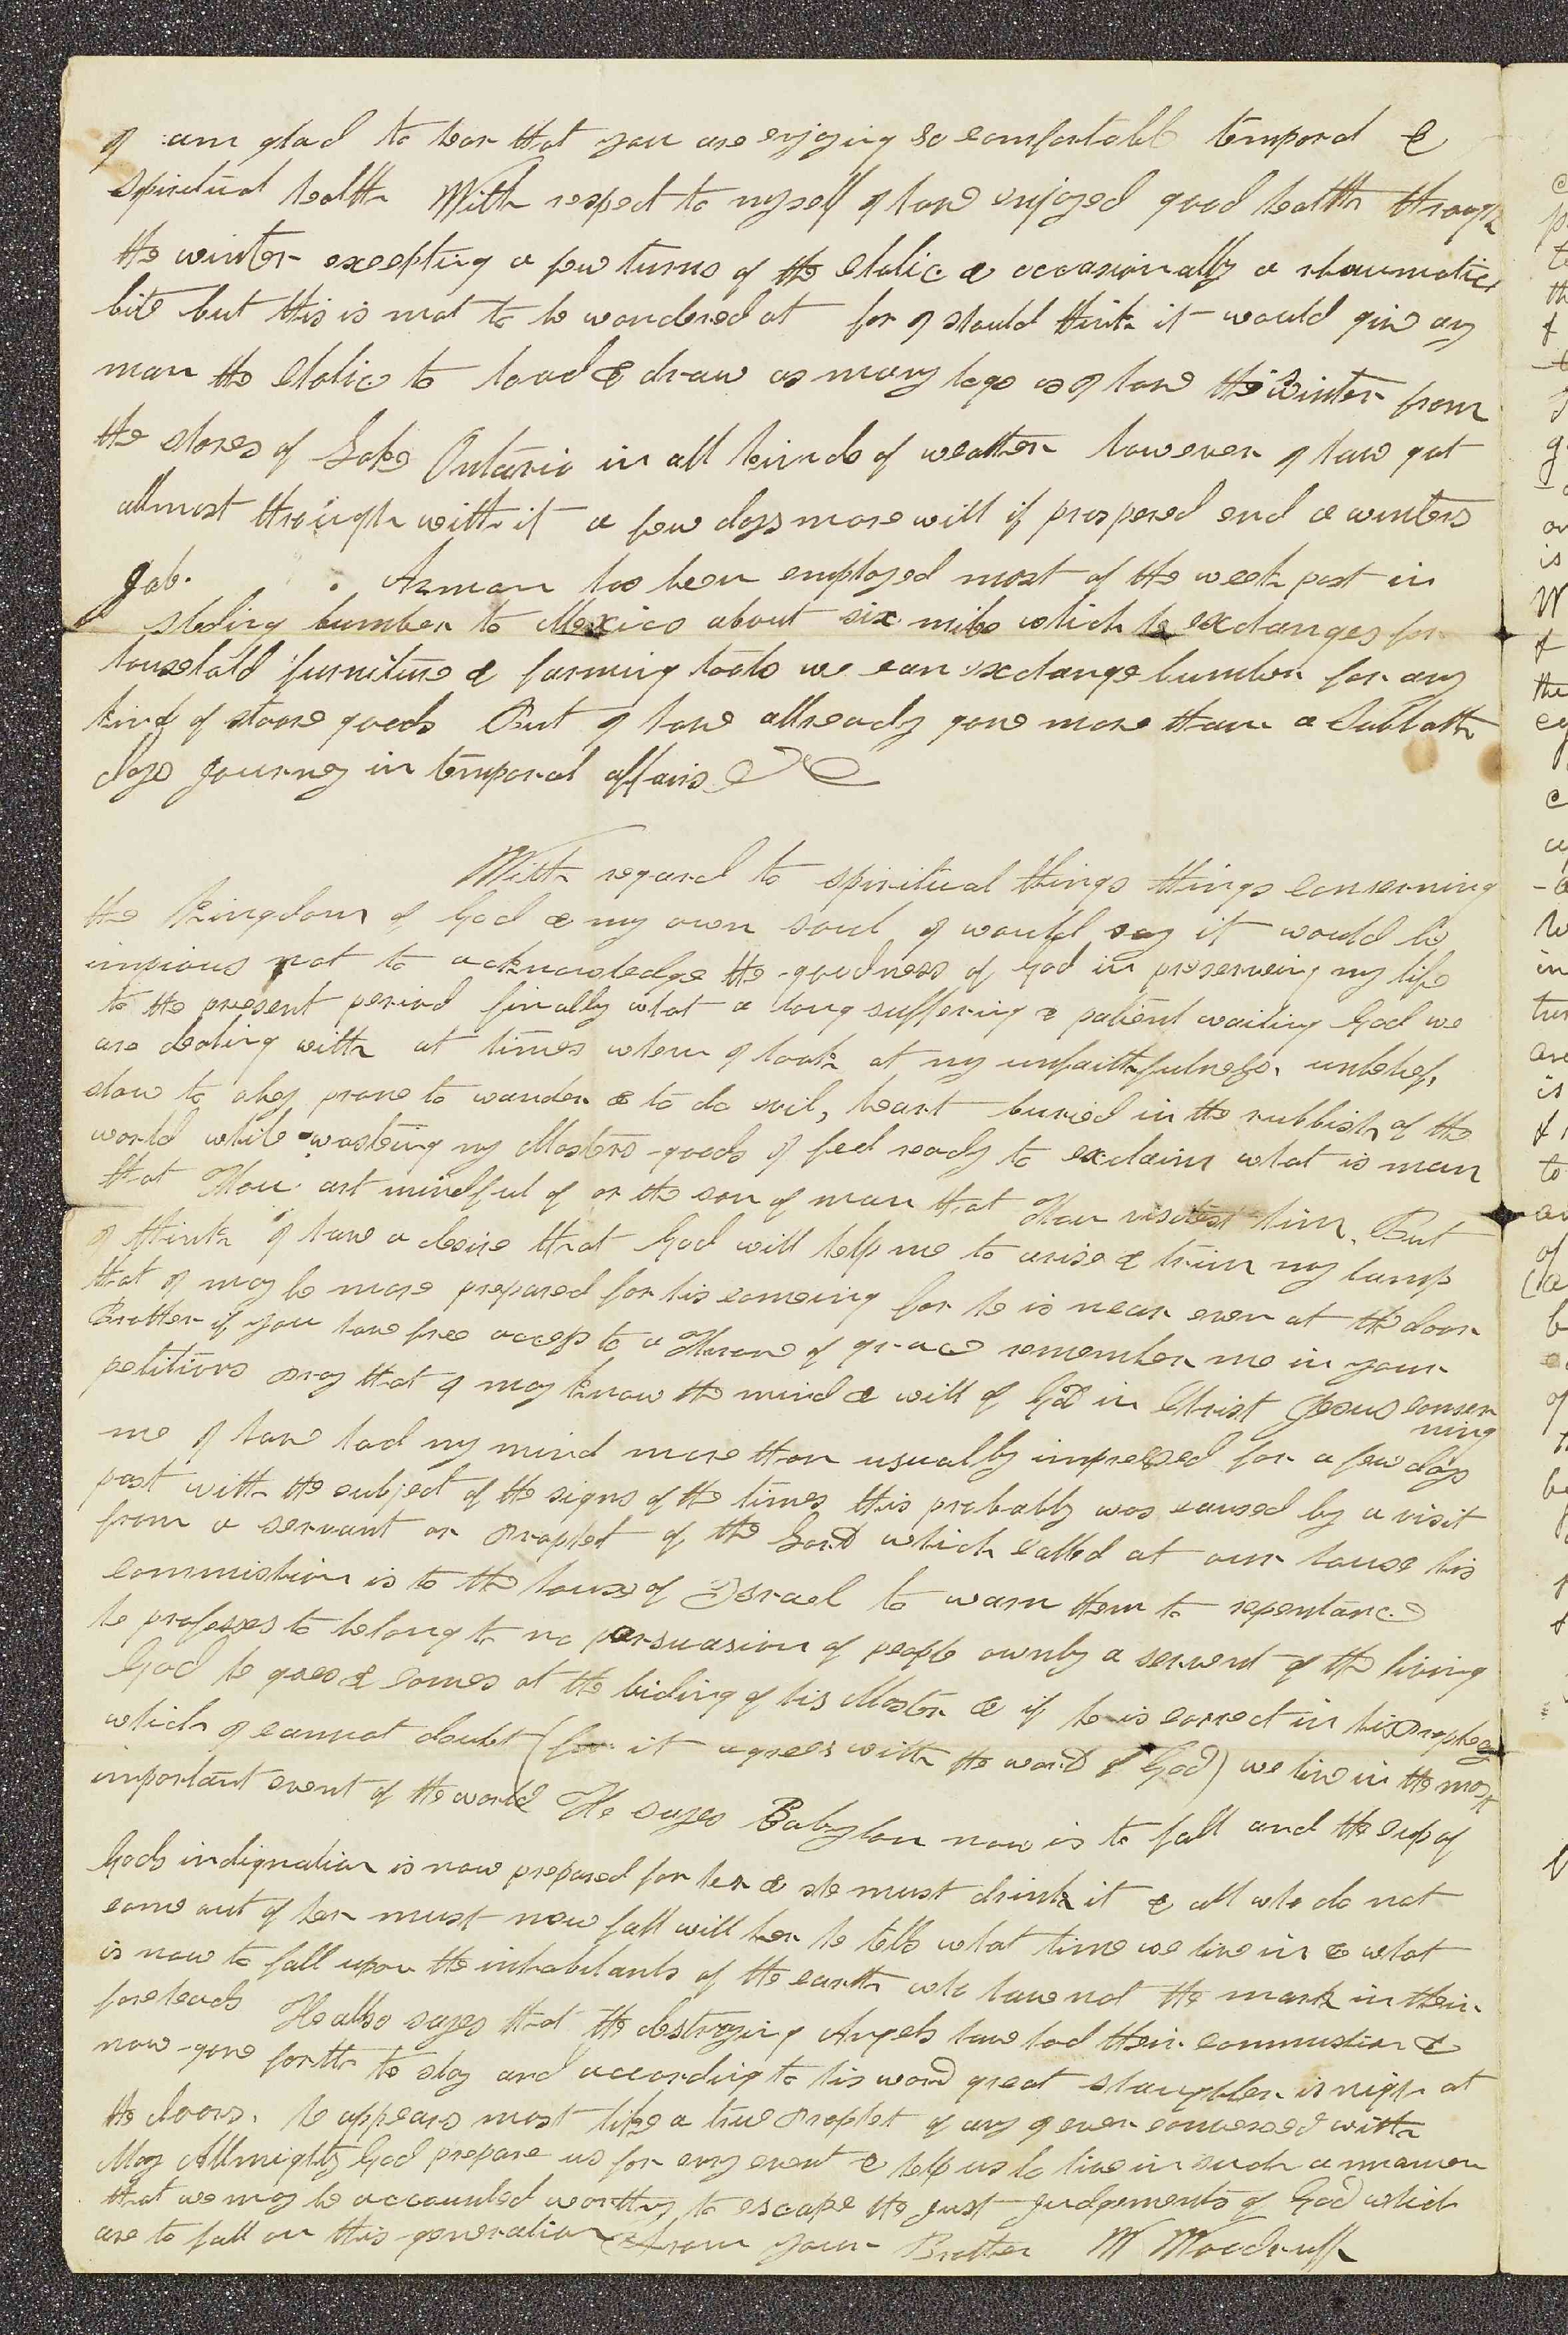 I am glad to hear that you are enjoying so comfortabl temporal &
spiritual health With respect to myself I have enjoyed good health through
the winter excepting a few turns of the cholic & occasionally a rhaumatic
bite but this is not to be wondered at for I should think it would give any
man the cholic to load & draw as many logs as I have this winter from
the shores of Lake Ontario in all kinds of weather however I have got
allmost through with it a few days more will if prospered end a winters
Job. Azmon has been employed most of the week past in
sleding lumber to Mexico about six miles which he exchanges for
household furniture & farming tools we can exchange lumber for any
kind of stoore goods But I have allready gone more than a Sabbath
days Journey in temporal affairs
With regard to spiritual things things conserning
the Kingdom of God & my own soul I would say it would be
impious not to acknowledge the goodness of God in preserveing my life
to the present period finally what a long suffering & patient waiting God we
are dealing with at times when I look at my unfaithfulness, unbelief,
slow to obey prone to wander & to do evil, heart buried in the rubbish of the
world while wasteing my Masters goods I feel ready to exclaim what is man
that Thou art mindful of or the son of man that Thou visitest him. But
I think I have a desire that God will help me to arise & trim my lamp
that I may be more prepared for his comeing for he is near even at the door
Brother if you have free access to a Throne of grace remember me in your
petitions pray that I may know the mind & will of God in Christ Jesus conser
ning
me I have had my mind more than usually impressed for a few days
past with the subject of the signs of the times this probably was caused by a visit
from a servant or Prophet of the Lord which called at our house his
commishion is to the house of Israel to warn them to repentance
he professes to belong to no persuasion of people ownly a servent of the living
God he goes & comes at the biding of his Master & if he is correct in his Prophecy
which I cannot doubt (for it agrees with the word of God) we live in the most
important event of the world He sayes Babylon now is to fall and the cup of
Gods indignation is now prepared for her & she must drink it & all who do not
come out of her must now fall will her he tells what time we live in & what
is now to fall upon the inhabitants of the earth who have not the mark in their
foreheads He allso sayes that the destroying Angels have had their commission &
now gone forth to slay and according to his word great slaughter is nigh at
the doors. he appears most like a true Prophet of any I ever conversed with
May Allmighty God prepare us for evry event & help us to live in such a manner
that we may be accounted worthy to escape the just Judgements of God which
are to fall on this generation from your Brother W Woodruff